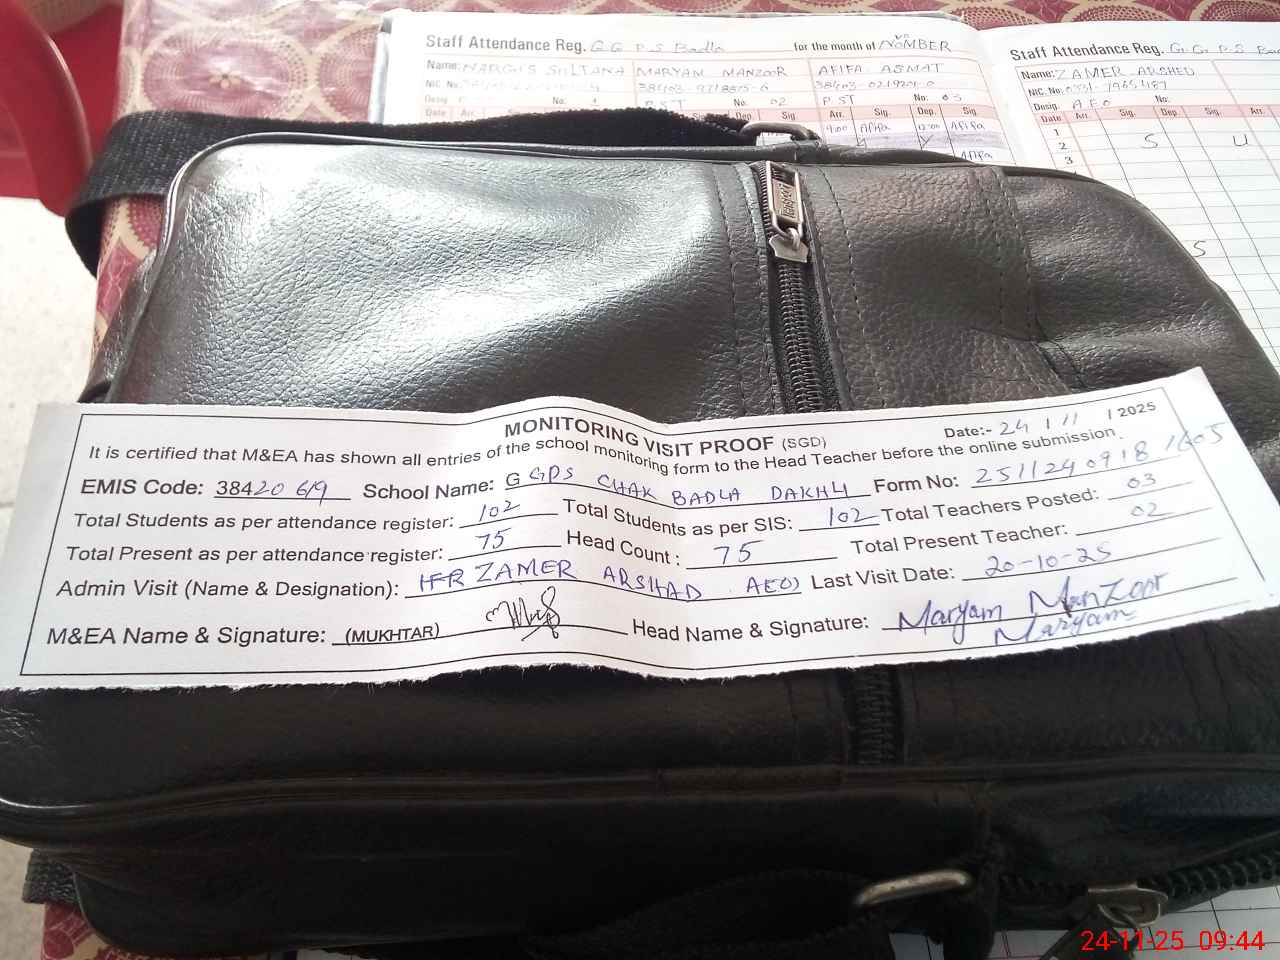 Staff Attendance Reg. G.G.P.S Badla for the month of NOVEMBER
Name: NARGIS SULTANA MARYAM MANZOOR AFIFA ASMAT
NIC. No. 38403-9718815-6 38403-0219201-0
Desig. No: PST No: 02 PST No: 03
Date Arr. Sig. Dep. Sig. Arr. Sig. Dep. Sig
9:00 Afifa 12:00 Afifa
Afifa
Staff Attendance Reg. G.G.P.S
Name: ZAMER ARSHED
NIC. No.
Desig. AEO No:
Date Arr. Sig. Dep. Sig. Arr.
1
2 S U
3
S
MONITORING VISIT PROOF (SGD) Date:- 24 / 11 / 2025
It is certified that M&EA has shown all entries of the school monitoring form to the Head Teacher before the online submission.
EMIS Code: 38420619 School Name: G GPS CHAK BADLA DAKHLI Form No: 25112409181605
Total Students as per attendance register: 102 Total Students as per SIS: 102 Total Teachers Posted: 03
Total Present as per attendance register: 75 Head Count : 75 Total Present Teacher: 02
Admin Visit (Name & Designation): ZAMER ARSHAD AEO) Last Visit Date: 20-10-25
M&EA Name & Signature: (MUKHTAR) Head Name & Signature: Maryam Manzoor
Maryam
24-11-25 09:44